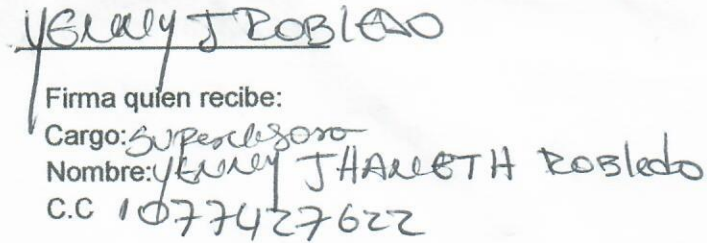 YENNY J ROBLEDO
Firma quien recibe:
Cargo: Supervisora
Nombre: YENNY JHANETH ROBLEDO
C.C 1077427622